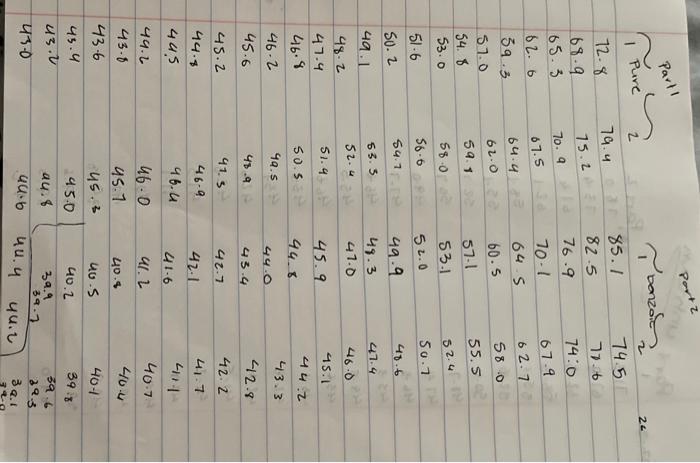 Part 1 Part 2
1 Pure 2 1 benzoic 2
72.8 79.4 85.1 74.5
68.9 75.2 82.5
65.3 70.9 76.9 74.0
62.6 67.5 70.1 67.9
59.3 64.4 64.5 62.7
57.0 62.0 60.5 58.0
54.8 59.8 57.1 55.5
53.0 58.0 53.1 52.4
51.6 56.6 52.0 50.7
50.2 54.7 49.9 48.6
49.1 53.5 48.3 47.4
48.2 52.4 47.0 46.0
47.4 51.4 45.9 45.1
46.8 50.5 44.8 44.2
46.2 49.5 44.0 43.3
45.6 48.9 43.4 42.8
45.2 47.5 42.7 42.2
44.8 46.9 42.1 41.7
44.5 46.4 41.6 41.1
44.2 46.0 41.2 40.7
43.8 45.7 40.8 40.4
43.6 45.3 40.5 40.1
43.4 45.0 40.2 39.8
43.2 44.8 39.9 39.6
39.7 39.5
43.0 44.6 44.4 44.2 39.1